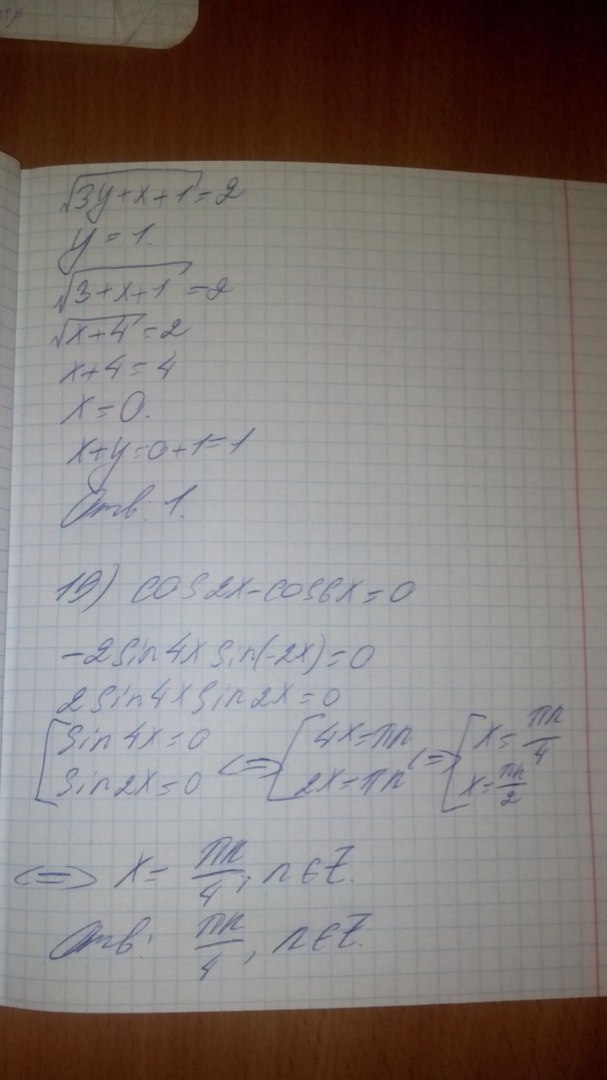 √(3y+x+1) = 2
y = 1.
√(3+x+1) = 2
√(x+4) = 2
x+4=4
x=0.
x+y=0+1=1
Отв: 1.
19) cos2x-cos6x=0
-2sin4x sin(-2x)=0
2sin4x sin2x=0
[sin4x=0 <=> [4x=πn <=> [x=πn/4
sin2x=0 2x=πn x=πn/2
<=> x= πn/4, n∈Z.
Отв: πn/4, n∈Z.